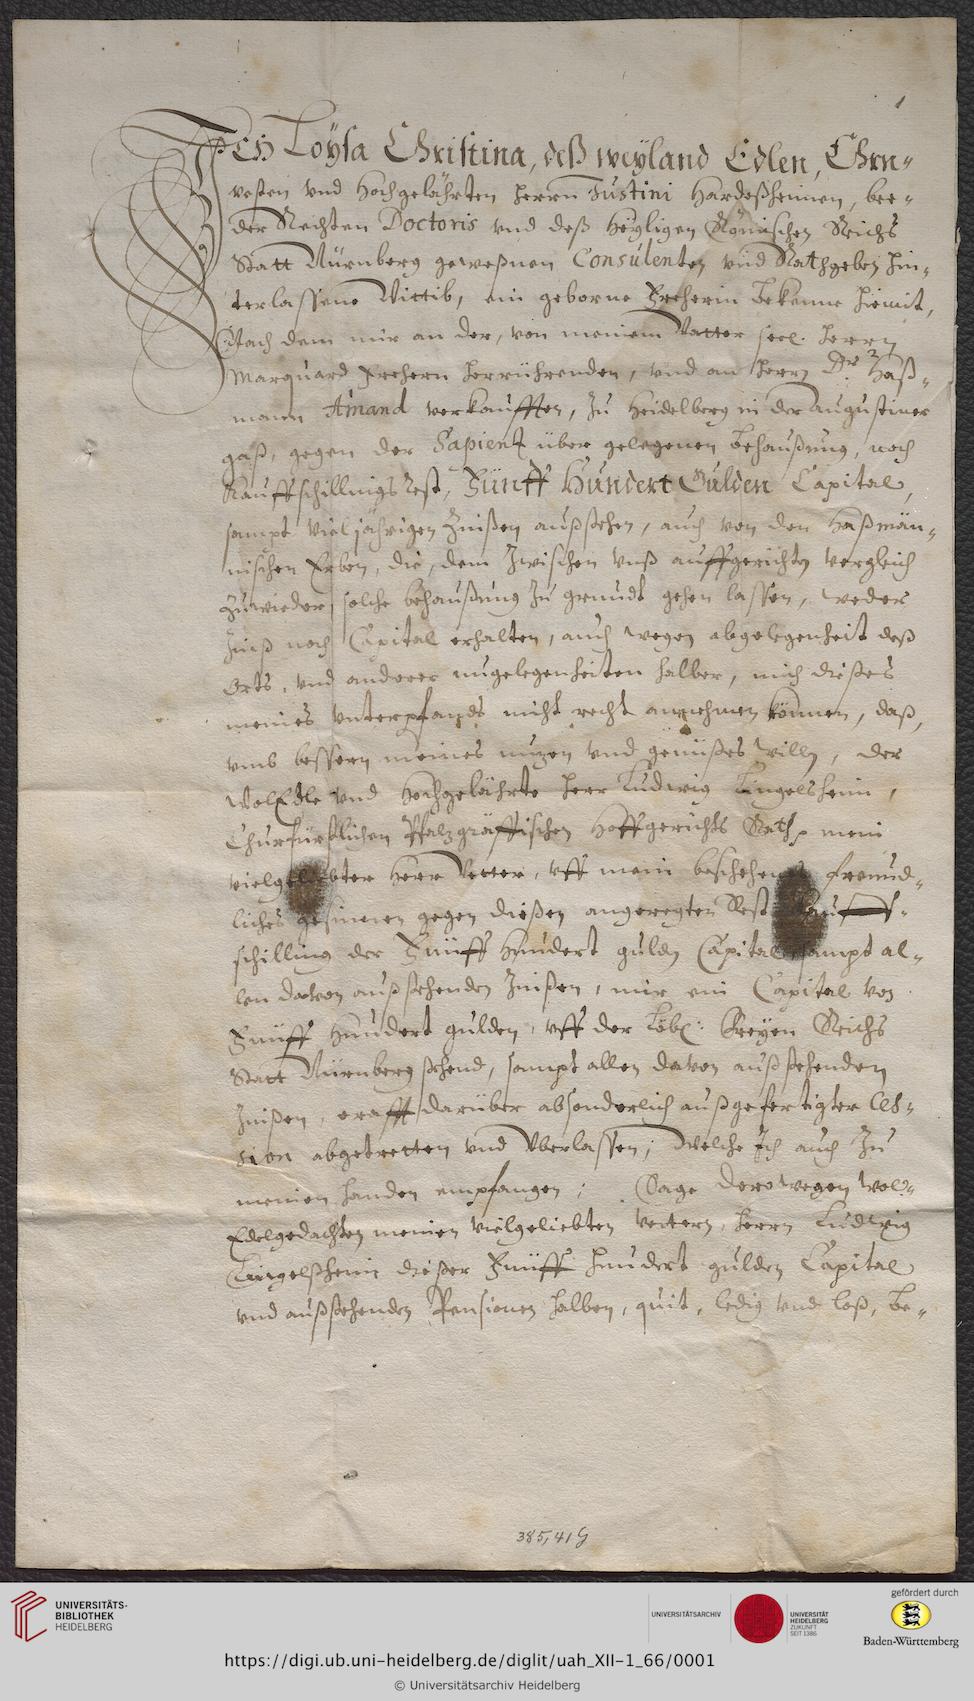 1
ICH Loysa Christina, deß weyland Edlen, Ehrn-
vesten und Hochgelährten Herrn Justini Hardeßheimen, bee-
der Rechten Doctoris vnd deß Heyligen Römischen Reichs
Statt Nürnberg geweßnen Consulenten vnd Rathgeben hin-
terlassene Wittib, ein geborne Freherin bekenne hiemit,
Nach dem mir an der, von meinem Vatter seel. Herrn
Marquard Frehern herrührenden, vnd an Herrn Dr. Haß-
mann Amand verkaufften, zu Heidelberg in der Augustiner
gaß, gegen der Sapientz über gelegenen Behaußung, noch
Kauffschillings Rest, Fünff Hundert Gulden Capital,
sampt vieljährigen Zinßen außstehen, auch von den Haßmän-
nischen Erben, die, dem Zwischen vnß auffgerichten vergleich
zuwieder, solche behaußung zu grundt gehen lassen, weder
Zinß noch Capital erhalten, auch wegen abgelegenheit deß
Orts, vnd anderer ungelegenheiten halber, mich dießes
meines vnterpfands nicht recht annehmen können, daß,
vmb bessern meines nuzen vnd genüßes willen, der
WolEdle vnd Hochgelährte Herr Ludwig Lingelsheim,
Churfürstlichen Pfalzgräffischen Hoffgerichts Rath, mein
vielgeliebter Herr Vetter, vff mein beschehenes freund-
liches gesinnen gegen dießen angeregten Rest Kauff-
schilling der Fünff Hundert gulden Capital, sampt al-
len davon außstehenden Zinßen, mir ein Capital von
Fünff Hundert gulden, vff der Löbl: Freyen Reichs
Statt Nürnberg stehend, sampt allen davon außstehenden
Zinßen, crafft darüber absonderlich außgefertigter Ces-
sion abgetretten vnd vberlassen; Welche Ich auch zu
meinen handen empfangen; Sage derowegen Wol-
Edelgedachten meinen vielgeliebten Vettern, Herrn Ludwig
Lingelßheim dießer Fünff hundert gulden Capital
vnd außstehenden Pensionen halben, quit, ledig vnd loß, be-
385,41 G
UNIVERSITÄTS-
BIBLIOTHEK
HEIDELBERG
UNIVERSITÄTSARCHIV
UNIVERSITÄT
HEIDELBERG
ZUKUNFT
SEIT 1386
gefördert durch
Baden-Württemberg
https://digi.ub.uni-heidelberg.de/diglit/uah_XII-1_66/0001
© Universitätsarchiv Heidelberg